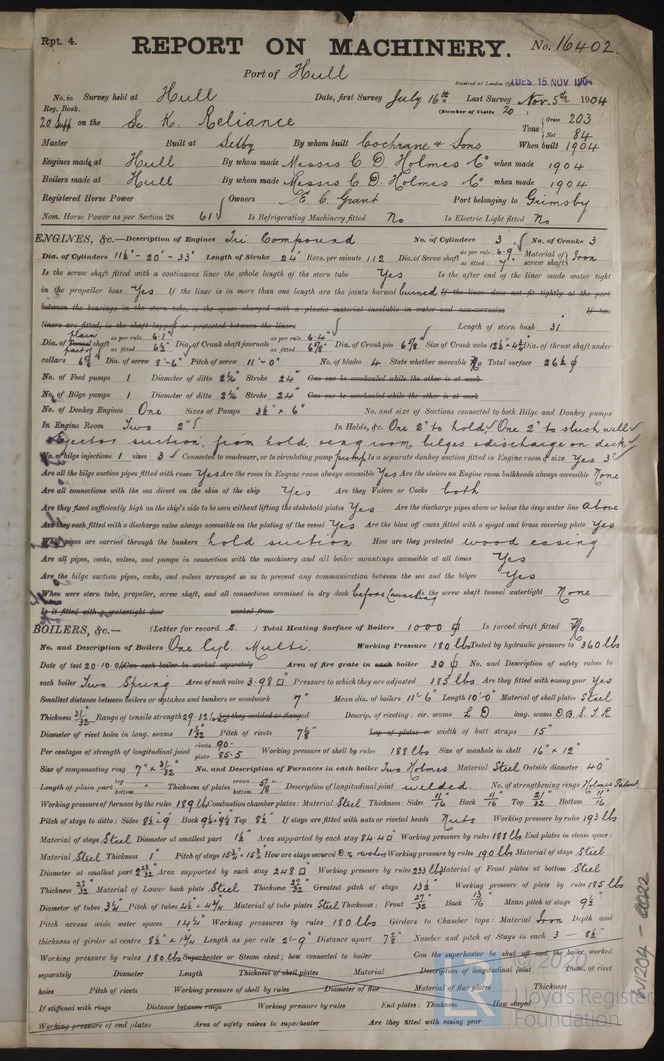 Rpt. 4.
REPORT ON MACHINERY. No. 16402.
Port of Hull
Received at London Office TUES. 15 NOV 1904
No. in Survey held at Hull Date, first Survey July 16th Last Survey Nov. 5th 1904
Reg. Book. (Number of Visits 20)
on the Sc. K. Reliance Tons Gross 203 Net 84
Master Built at Selby By whom built Cochrane & Sons When built 1904
Engines made at Hull By whom made Messrs C. D. Holmes Co when made 1904
Boilers made at Hull By whom made Messrs C. D. Holmes Co when made 1904
Registered Horse Power Owners E. C. Grant Port belonging to Grimsby
Nom. Horse Power as per Section 28 61 Is Refrigerating Machinery fitted No Is Electric Light fitted No
ENGINES, &c.—Description of Engines Tri. Compound No. of Cylinders 3 No. of Cranks 3
Dia. of Cylinders 11½" - 20" - 33" Length of Stroke 24" Revs. per minute 112 Dia. of Screw shaft as per rule 6.9" as fitted 7" Material of screw shaft Iron
Is the screw shaft fitted with a continuous liner the whole length of the stern tube Yes Is the after end of the liner made water tight
in the propeller boss Yes If the liner is in more than one length are the joints burned burned If the liner does not fit tightly at the part
between the bearings in the stern tube, is the space charged with a plastic material insoluble in water and non-corrosive If two
liners are fitted, is the shaft lapped or protected between the liners Length of stern bush 31
Dia. of plain shaft as per rule 6.1" as fitted 6½" Dia. of Crank shaft journals as per rule 6.4" as fitted 6⅞" Dia. of Crank pin 6⅞ Size of Crank webs 12½"×4½" Dia. of thrust shaft under
collars 6⅞" Dia. of screw 8'-6" Pitch of screw 11'-0" No. of blades 4 State whether moveable No Total surface 26½
No. of Feed pumps 1 Diameter of ditto 2⅛" Stroke 24" Can one be overhauled while the other is at work
No. of Bilge pumps 1 Diameter of ditto 2⅛" Stroke 24" Can one be overhauled while the other is at work
No. of Donkey Engines One Sizes of Pumps 3½" × 6" No. and size of Suctions connected to both Bilge and Donkey pumps
In Engine Room Two 2" In Holds, &c. One 2" to hold, One 2" to slush well
Ejector suction from hold, eng room bilges & discharge on deck
No. of bilge injections 1 sizes 3 Connected to condenser, or to circulating pump pump Is a separate donkey suction fitted in Engine room & size Yes 3"
Are all the bilge suction pipes fitted with roses Yes Are the roses in Engine room always accessible Yes Are the sluices on Engine room bulkheads always accessible None
Are all connections with the sea direct on the skin of the ship Yes Are they Valves or Cocks both
Are they fixed sufficiently high on the ship's side to be seen without lifting the stokehold plates Yes Are the discharge pipes above or below the deep water line above
Are they each fitted with a discharge valve always accessible on the plating of the vessel Yes Are the blow off cocks fitted with a spigot and brass covering plate Yes
What pipes are carried through the bunkers hold suction How are they protected wood casing
Are all pipes, cocks, valves, and pumps in connection with the machinery and all boiler mountings accessible at all times Yes
Are the bilge suction pipes, cocks, and valves arranged so as to prevent any communication between the sea and the bilges Yes
When were stern tube, propeller, screw shaft, and all connections examined in dry dock before launching Is the screw shaft tunnel watertight None
Is it fitted with a watertight door worked from
BOILERS, &c.— (Letter for record 2.) Total Heating Surface of Boilers 1000 Is forced draft fitted No
No. and Description of Boilers One Cyl. Multi. Working Pressure 180 lbs Tested by hydraulic pressure to 360 lbs
Date of test 20.10.04 Can each boiler be worked separately Area of fire grate in each boiler 30 No. and Description of safety valves to
each boiler Two Spring Area of each valve 3.98 Pressure to which they are adjusted 185 lbs Are they fitted with easing gear Yes
Smallest distance between boilers or uptakes and bunkers or woodwork 7" Mean dia. of boilers 11'-6" Length 10'-0" Material of shell plates Steel
Thickness 31/32" Range of tensile strength 29.32 Are they welded or flanged Descrip. of riveting: cir. seams L D long. seams D B S. T. R
Diameter of rivet holes in long. seams 1 1/32" Pitch of rivets 7⅛" Lap of plates or width of butt straps 15"
Per centages of strength of longitudinal joint rivets 90. plate 85.5 Working pressure of shell by rules 188 lbs Size of manhole in shell 16" × 12"
Size of compensating ring 7" × 31/32" No. and Description of Furnaces in each boiler Two Holmes Material Steel Outside diameter 40"
Length of plain part top bottom Thickness of plates crown bottom Description of longitudinal joint welded. No. of strengthening rings Holmes Patent
Working pressure of furnace by the rules 189 lbs Combustion chamber plates: Material Steel Thickness: Sides 11/16" Back 11/16" Top 21/32" Bottom 11/16"
Pitch of stays to ditto: Sides 8½×9" Back 9½×9½ Top 8½" If stays are fitted with nuts or riveted heads Nuts Working pressure by rules 193 lbs
Material of stays Steel Diameter at smallest part 1½" Area supported by each stay 84.4 Working pressure by rules 188 lbs End plates in steam space:
Material Steel Thickness 1" Pitch of stays How are stays secured Working pressure by rules 190 lbs Material of stays Steel
Diameter at smallest part Area supported by each stay 248 Working pressure by rules 223 lbs Material of Front plates at bottom Steel
Thickness 27/32" Material of Lower back plate Steel Thickness 27/32" Greatest pitch of stays 13½" Working pressure of plate by rules 185 lbs
Diameter of tubes 3¼" Pitch of tubes 4½"×4¾" Material of tube plates Steel Thickness: Front 27/32" Back 13/16" Mean pitch of stays 9½"
Pitch across wide water spaces 14¼" Working pressures by rules 180 lbs Girders to Chamber tops: Material Iron Depth and
thickness of girder at centre 8½" × 1¾" Length as per rule 2'-9" Distance apart 7⅞" Number and pitch of Stays in each 3 - 8½"
Working pressure by rules 180 lbs Superheater or Steam chest; how connected to boiler Can the superheater be shut off and the boiler worked
separately Diameter Length Thickness of shell plates Material Description of longitudinal joint Diam. of rivet
holes Pitch of rivets Working pressure of shell by rules Diameter of flue Material of flue plates Thickness
If stiffened with rings Distance between rings Working pressure by rules End plates: Thickness How stayed
Working pressure of end plates Area of safety valves to superheater Are they fitted with easing gear
W1204-0022
© 2020
Lloyd's Register
Foundation